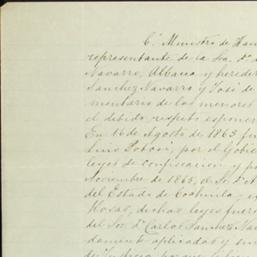 C. Ministro de Hac
representante de la Sra. Da.
Navarro, Albacea y hereder
Sanchez Navarro y José de
mentario de los menores
el debido respeto esponer
En 16 de Agosto de 1863 fue
Luis Potosí, por el Gobie
leyes de confiscacion y p
Noviembre de 1865, el Sr. D.
del Estado de Coahuila, y
Rosas, dichas leyes fuer
del Sor. Dn. Carlos Sanchez Na
damente aplicadas y sin